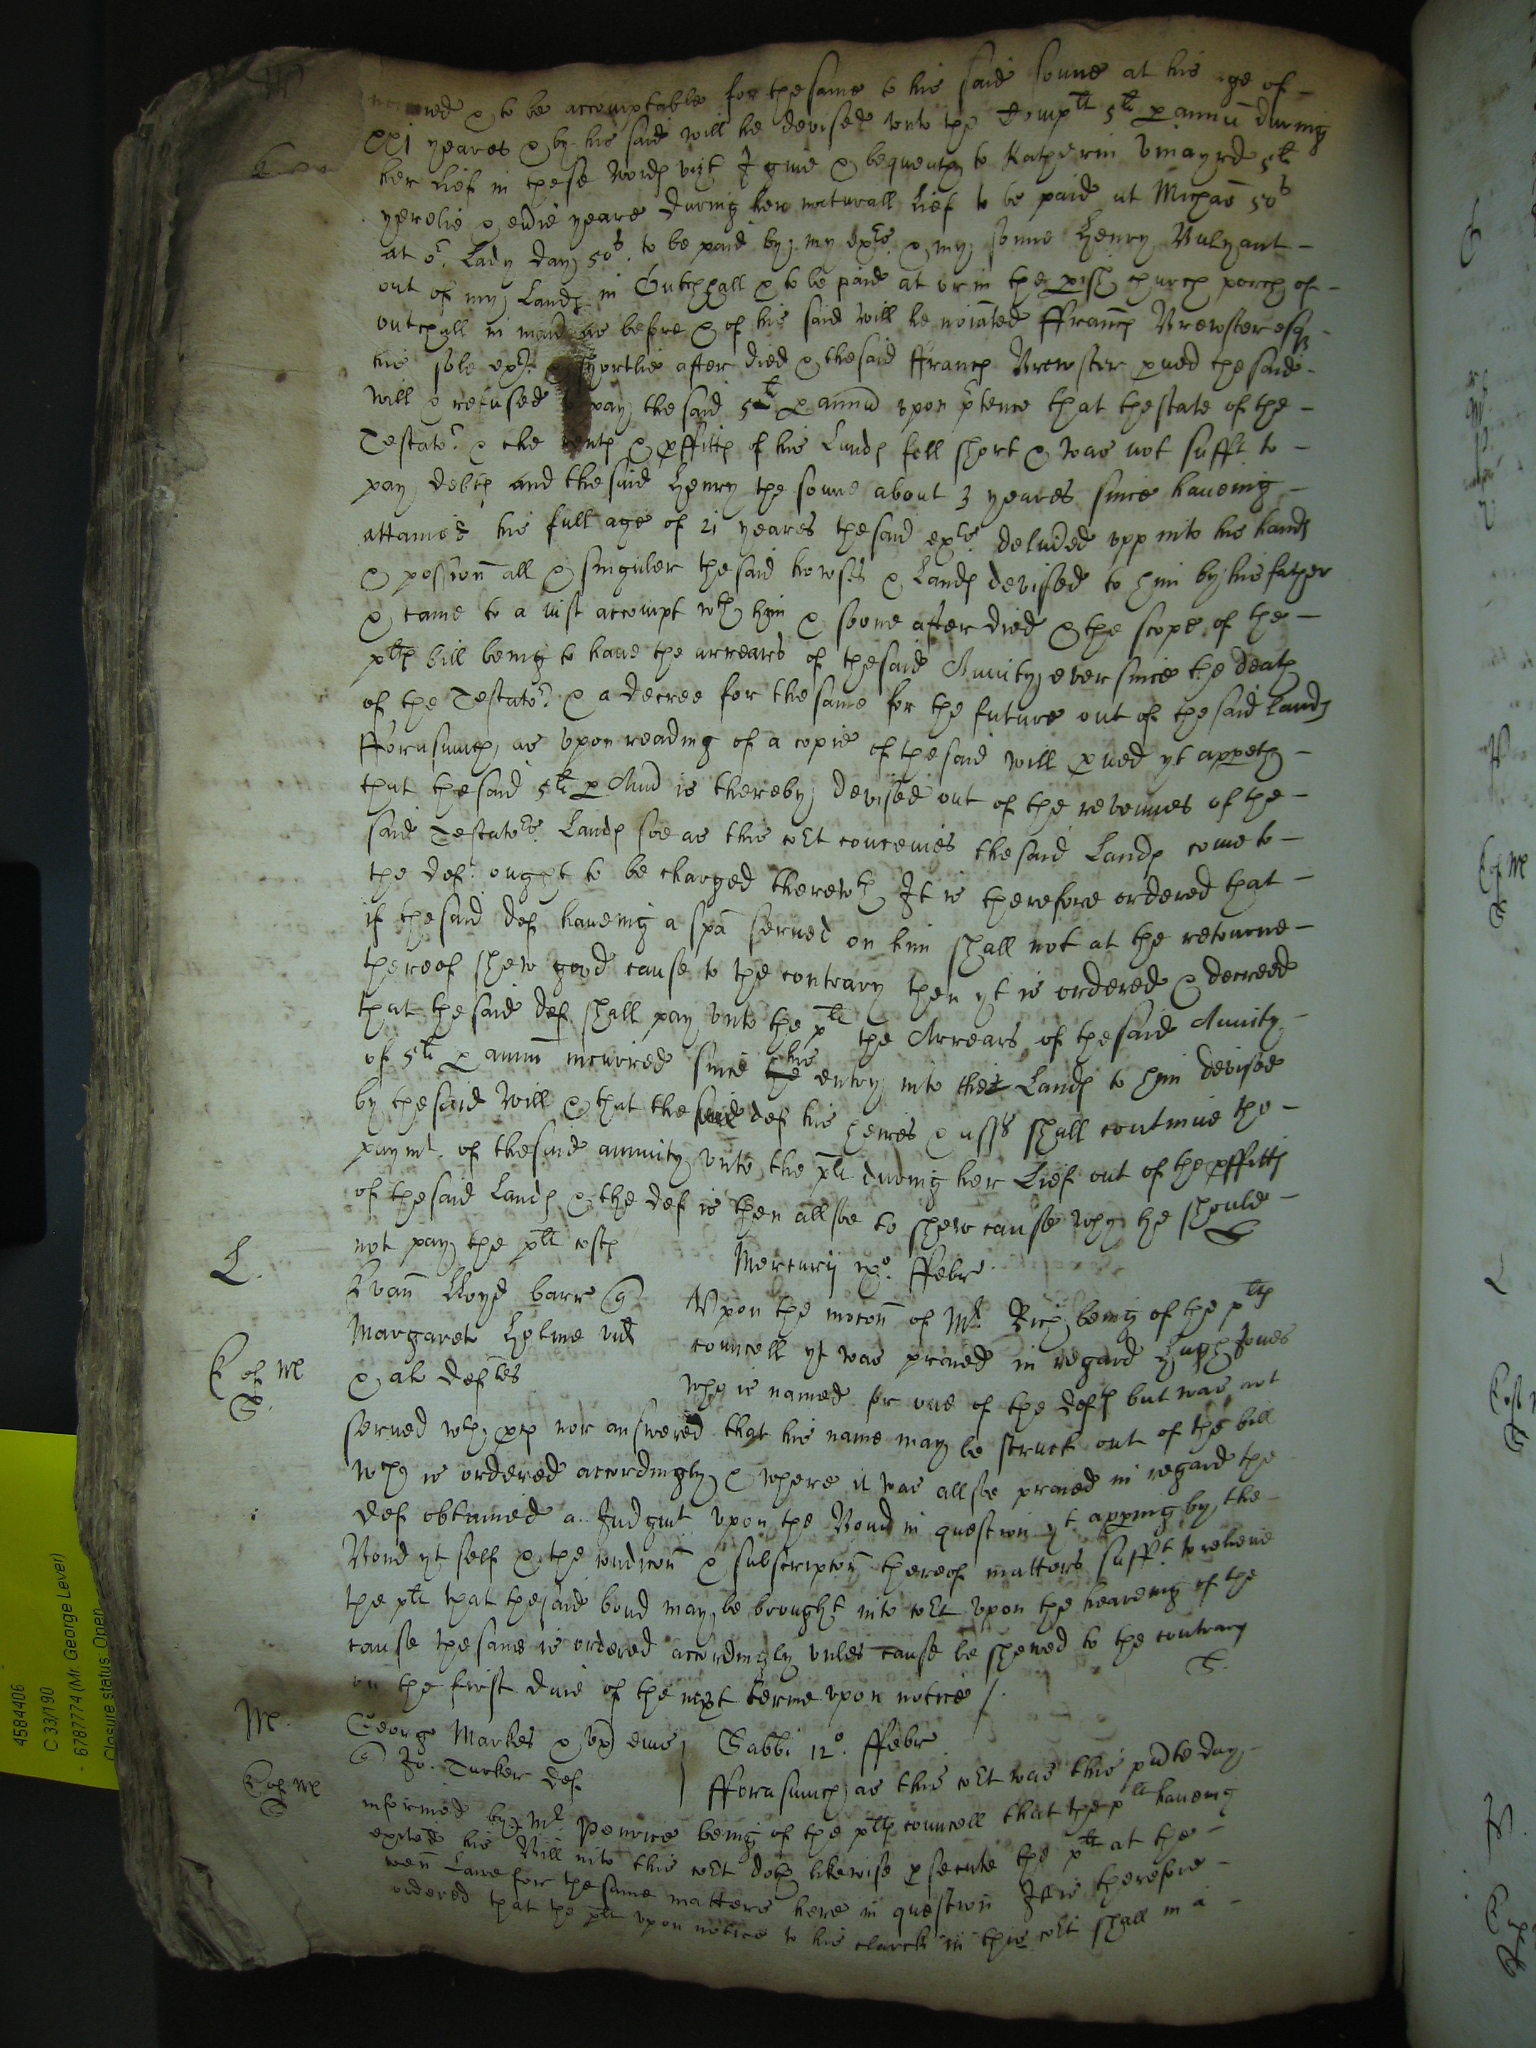 & to be accomptable for the same to his said sonne at his age of
xxi yeares & by his said will he devised unto the Compl^t 5^li p annu during
her lief in these words vizt I give & bequeath to Katherin Vinayrd 5^li
yerelie & evrie yeare during her naturall lief to be paid at Michas 50^s
at o^r Lady day 50^s to be paid by my ex^rs & my sonne Henry Bulyant
out of my Lands in Outchall & to be paid at or in the pish church porch of
outchall in as before & of his said will he noiated Ffrancs Brewster esq
his sole ex^r & shortlie after died & the said ffrancs Brewster pved the said
will & refused pay the said 5^li p annu upon p^rtence that the state of the
Testato^r & the rents & pffitts of his Lands fell short & was not suff^t to
pay debts and the said Henry the sonne about 3 yeares since haveing
attained his full age of 21 yeares the said ex^rs delivred upp into his hands
& possion all & singuler the said howses & Lands devised to him by his father
& came to a iust accompt w^th him & soone after died & the scope of the
p^lts bill being to have the arrears of the said Anuity ever since the death
of the Testato^r & a decree for the same for the future out of the said Lands
fforasmuch as upon reading of a copie of the said will pved yt appeth
that the said 5^li p Ann is thereby devised out of the revenues of the
said Testato^rs Lands soe as this co^rt conceives the said Lands come to
the def^t ought to be charged therew^th It is therefore ordered that
if the said def haveing a spa served on him shall not at the retourne
thereof shew good cause to the contrary then yt is ordered & decreed
that the said def shall pay unto the p^lt the Arrears of the said Anuity
of 5^li p annu incurred since his entry into the Lands to him devised
by the said will & that the said def his heires & ass^s shall continue the
paym^t of the said annuity unto the p^lt during her Lief out of the pffitts
of the said Lands & the def is then allsoe to shew cause why he should
not pay the p^lt costs
S
L.
Mercurij ix^o ffebr
Evan Lloyd barr q
Margareta Helme vid
& al def^tes
Ex of Me
S.
Upon the mocon of M^r Rich being of the p^lts
councell yt was praied in regard Hugh Jones
who is named for one of the defts but was not
served w^th pces nor answered that his name may be struck out of the bill
w^ch is ordered accordingly & where it was allsoe praied in regard the
def obtained a Judgmt upon the Bond in question yt apping by the
Bond yt self & the condicon & subscripton thereof matters suff^t to relieve
the p^lt that the said bond may be brought into co^rt upon the heareing of the
cause the same is ordered accordingly unles cause be shewed to the contrary
on the first daie of the next terme upon notice /.
S.
M.
George Markes & ux eius
q Jo. Tucker def
Sabbi 12^o ffebr
Ex of Me
S
fforasmuch as this co^rt was this pnte day
informed by M^r Penrice being of the p^lts councell that the p^lt haveing
exited his Bill into this co^rt doth likewise psecute the p^lt at the
coen Lawe for the same matters here in question It is therefore
ordered that the p^lt upon notice to his clarck in this co^rt shall in a
4584406
C 33/190
6787774 (Mr George Lever)
Closure status: Open